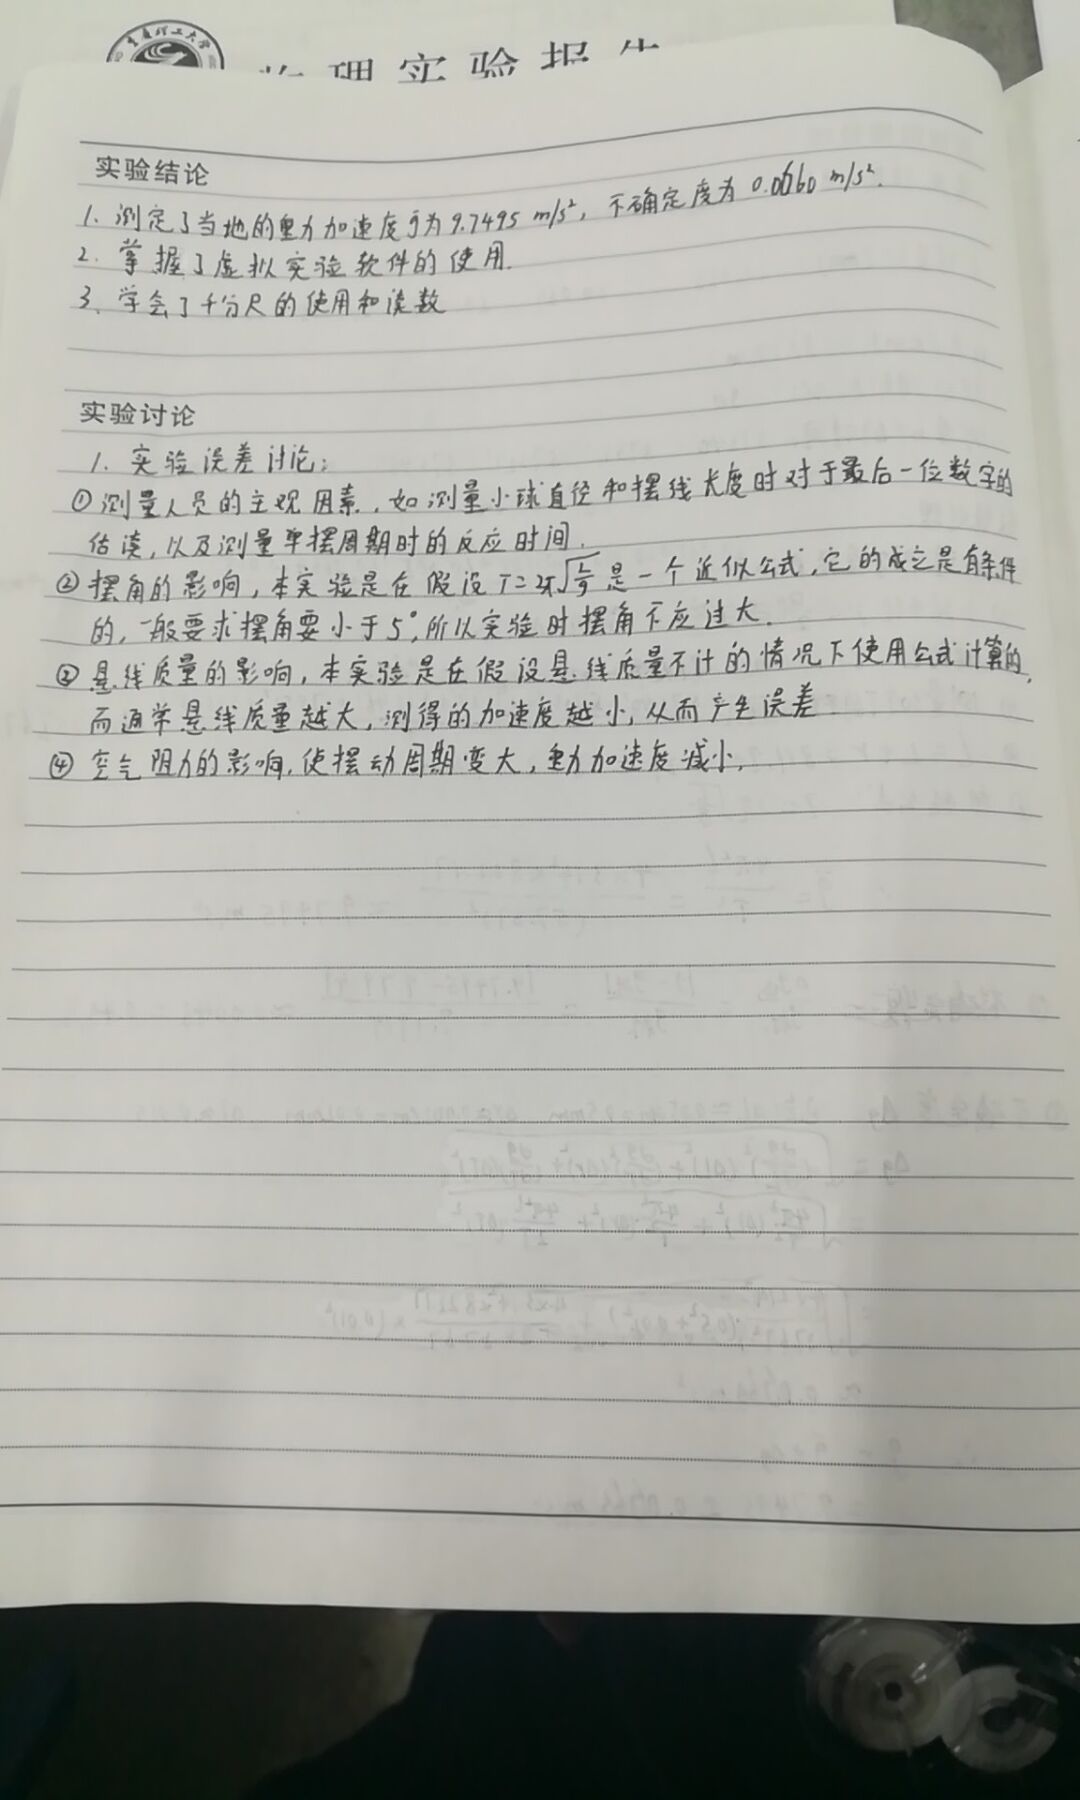 重庆理工大学
物理实验报告
实验结论
1. 测定了当地的重力加速度g为9.7495 m/s², 不确定度为 m/s².
2. 掌握了虚拟实验软件的使用.
3. 学会了千分尺的使用和读数
实验讨论
1. 实验误差讨论:
①测量人员的主观因素, 如测量小球直径和摆线长度时对于最后一位数字的
估读, 以及测量单摆周期时的反应时间.
②摆角的影响, 本实验是在假设T=2π√(L/g)是一个近似公式, 它的成立是有条件
的, 一般要求摆角要小于5°, 所以实验时摆角不应过大.
③悬线质量的影响, 本实验是在假设悬线质量不计的情况下使用公式计算的,
而通常悬线质量越大, 测得的加速度越小, 从而产生误差
④空气阻力的影响, 使摆动周期变大, 重力加速度减小.